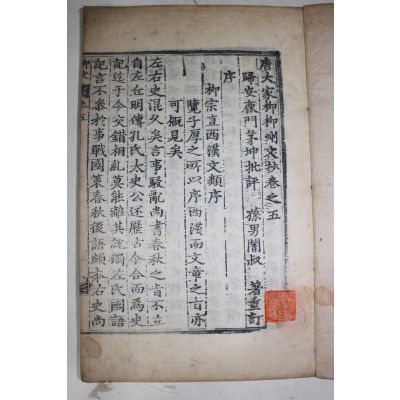 唐大家柳柳州文抄卷之五
歸安鹿門茅坤批評 孫男闇叔著重訂
序
柳宗直西漢文類序
覽子厚之所以序西漢而文章之旨亦
可槪見矣
左右史混久矣言事駁亂尚書春秋之旨不立
自左丘明傳孔氏太史公述歷古今合而爲史
記迄于今交錯相乱莫能離其說獨左氏國語
記言不參於事戰國策春秋後語頗本右史尚
柳文 卷五